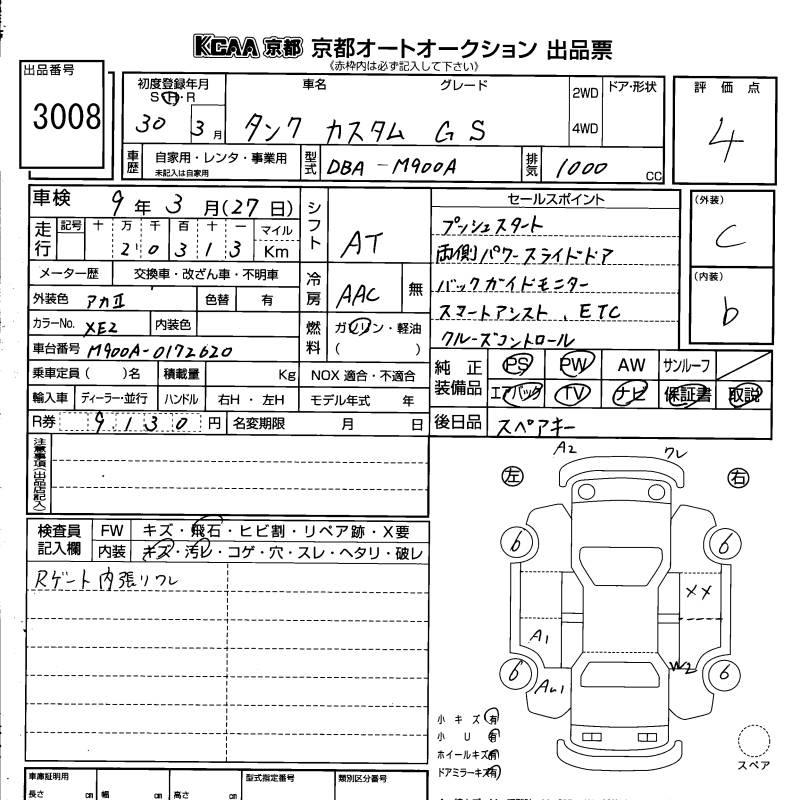 KCAA 京都 京都オートオークション 出品票
《赤枠内は必ず記入して下さい》
出品番号
3008
初度登録年月
S・H・R
30 3月
車名
グレード
タンク カスタム GS
2WD
4WD
ドア・形状
評価点
4
車歴
自家用・レンタ・事業用
未記入は自家用
型式
DBA-M900A
排気
1000 CC
車検
9年3月(27日)
シフト
AT
セールスポイント
プッシュスタート
両側パワースライドドア
バックガイドモニター
スマートアシスト、ETC
クルーズコントロール
(外装)
C
(内装)
b
走行
記号 十 万 千 百 十 一
2 0 3 1 3
マイル
Km
メーター歴 交換車・改ざん車・不明車
冷房
AAC
無
外装色 アカⅡ 色替 有
カラーNo. XE2 内装色
燃料
ガソリン・軽油
( )
車台番号 M900A-0172620
乗車定員 ( )名 積載量 Kg NOX 適合・不適合
輸入車 ディーラー・並行 ハンドル 右H・左H モデル年式 年
R券 9,130円 名変期限 月 日
純正装備品
PS PW AW サンルーフ
エアバッグ TV ナビ 保証書 取説
後日品 スペアキー
注意事項(出品店記入)
検査員記入欄
FW キズ・飛石・ヒビ割・リペア跡・X要
内装 キズ・汚レ・コゲ・穴・スレ・ヘタリ・破レ
Rゲート内張リワレ
A2 ワレ
左 右
6 6
XX
A1
W2
6 6
AU1
小キズ 有
小U 有
ホイールキズ 有
ドアミラーキズ 有
スペア
車庫証明用
長さ cm 幅 cm 高さ cm
型式指定番号
類別区分番号